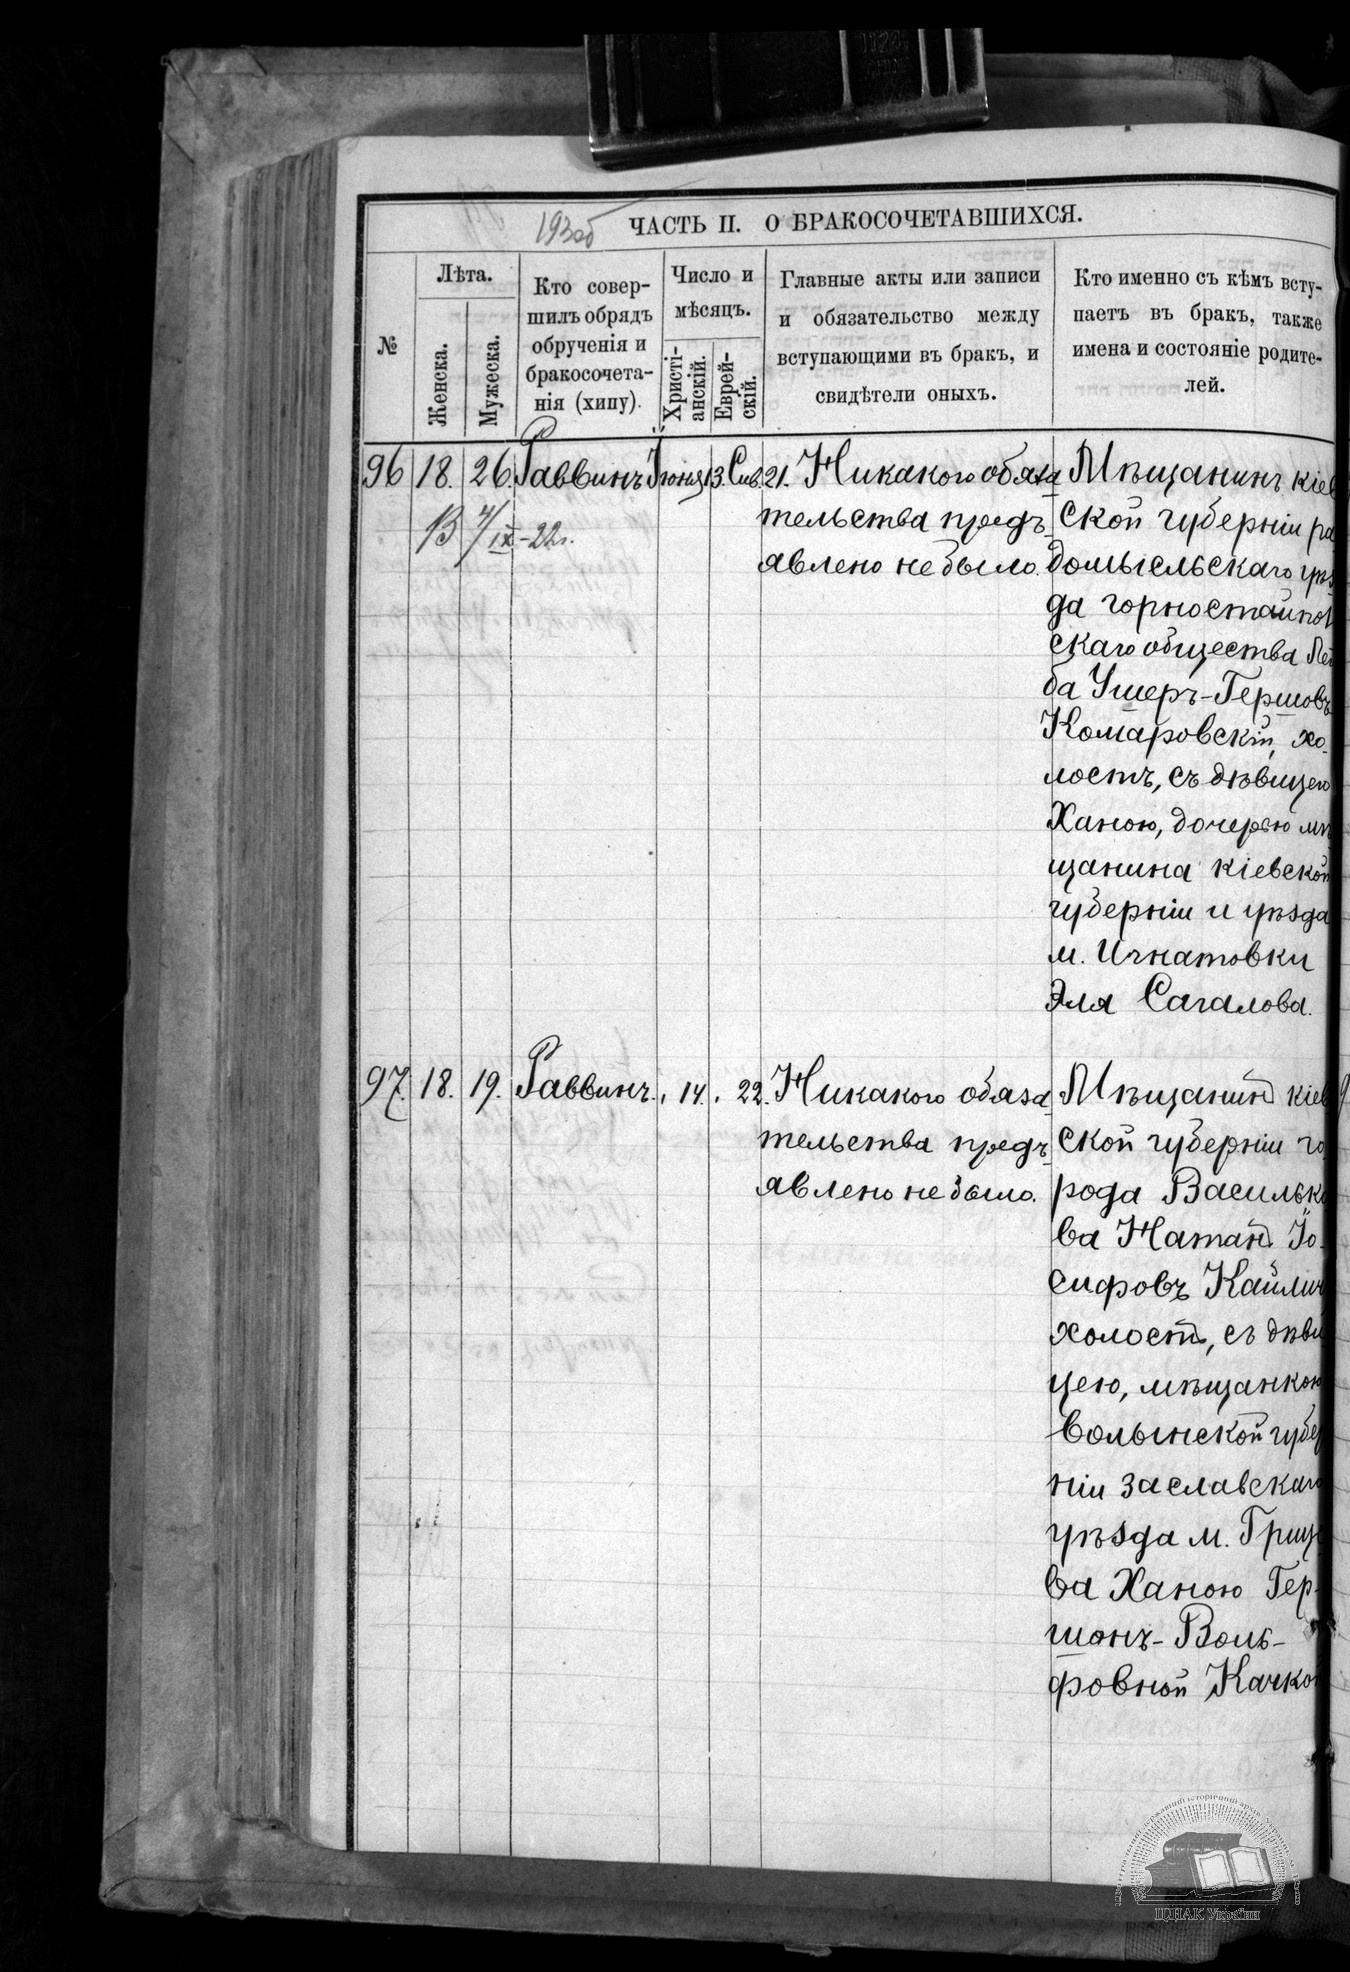 193об
ЧАСТЬ II. О БРАКОСОЧЕТАВШИХСЯ.
№
Лѣта.
Женска.
Мужеска.
Кто совер-
шилъ обрядъ
обрученія и
бракосочета-
нія (хипу).
Число и
мѣсяцъ.
Христі-
анскій.
Еврей-
скій.
Главные акты или записи
и обязательство между
вступающими въ бракъ, и
свидѣтели оныхъ.
Кто именно съ кѣмъ всту-
паетъ въ бракъ, также
имена и состояніе родите-
лей.
96 18. 26. Раввинъ Іюнь 13. Сив. 21.
В 4/IX-22г.
Никакого обяза
тельства предъ-
явлено не было.
Мѣщанинъ кіев
ской губерніи ра
домысльскаго уѣз
да горностайпол
скаго общества Лей
ба Ушеръ-Гершовъ
Комаровскій, хо-
лостъ, съ дѣвицею
Ханою, дочерью мѣ
щанина кіевской
губерніи и уѣзда
м. Игнатовки
Эля Сагалова.
97. 18. 19. Раввинъ. " 14. " 22.
Никакого обяза
тельства предъ-
явлено не было.
Мѣщанинъ кіев
ской губерніи го-
рода Василько
ва Натанъ Іо-
сифовъ Кайлич
холостъ, съ дѣви
цею, мѣщанкою
Волынской губер
ніи Заславскаго
уѣзда м. Грице
ва Ханою Гер-
шонъ-Воль-
фовной Качкой
ЦДІАК України